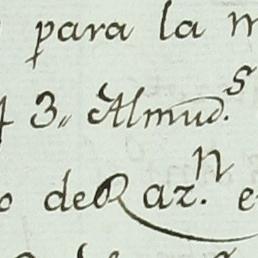 para la
3,, Almud.s
de Raz.n